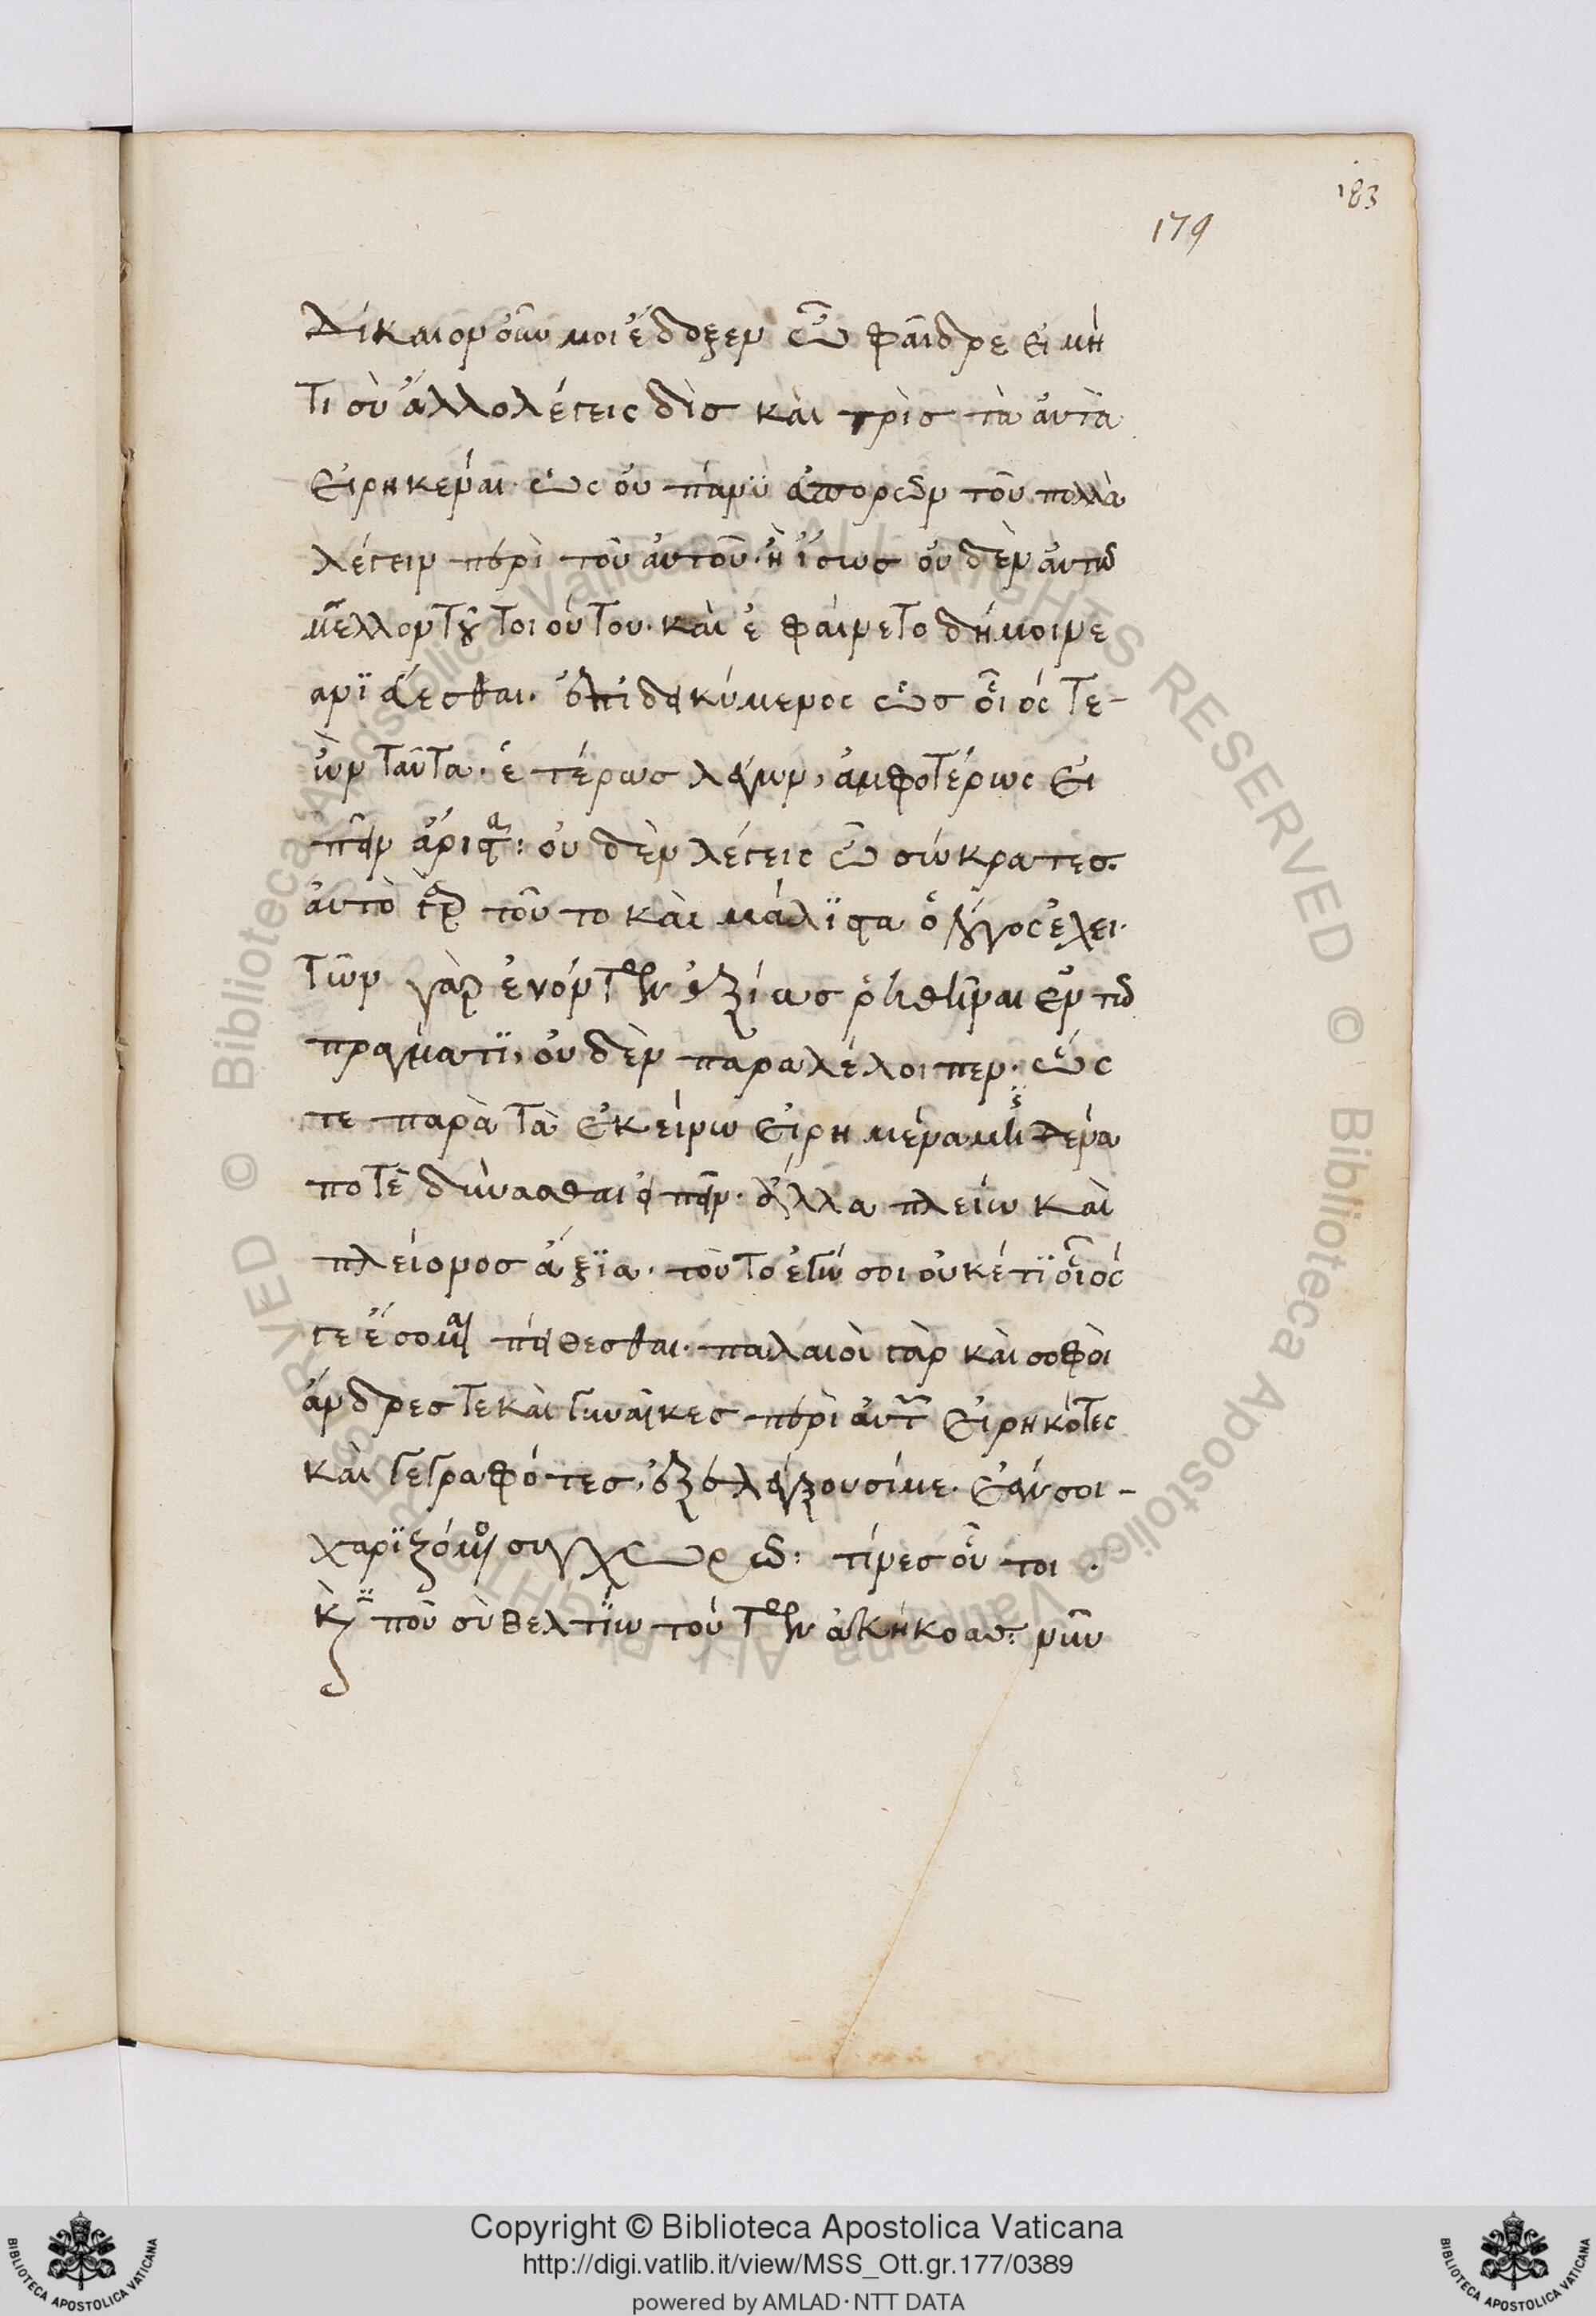 183
179
Δίκαιον οὖν μοι ἔδοξεν ὦ φαῖδρε εἰ μή
τι σὺ ἄλλο λέγεις δὶσ καὶ τρὶσ τὰ ἀυτὰ
εἰρηκέναι· ὡς οὐ πάνϋ ἐυπορῶν τοῦ πολλὰ
λέγειν περὶ τοῦ ἀυτοῦ· ἢ ἴσωσ οὐδὲν ἀυτῶ
μέλλον τοῦ τοιούτου· καὶ ἐφάινετο δή μοι νε
ανϊέυεσθαι· ἐπιδεικνύμενος ὡσ οἷός τε
ὢν ταῦτα· ἑτέρωσ λέγων, ἀμφοτέρως εἰ
πεῖν ἄριστα: οὐδὲν λέγεις ὦ σώκρατεσ·
ἀυτὸ γὰρ τοῦτο καὶ μάλϊστα ὁ λόγος ἔχει·
τῶν γὰρ ἐνόντων ἀξίωσ ῥηθῆναι ἐν τῶ
πράγματϊ, οὐδὲν παραλέλοιπεν· ὥς
τε παρὰ τὰ ἐκείνω εἰρημένα μηδένα
ποτὲ δύνασθαι εἰπεῖν· ἄλλα πλείω καὶ
πλείονοσ ἄξϊα· τοῦτο ἐγώ σοι οὐκέτϊ οἷός
τε ἔσομαι πείθεσθαι· παλαιοὶ γὰρ καὶ σοφὸι
ἄνδρες τε καὶ γυναῖκεσ περὶ ἀυτῶν εἰρηκότες
καὶ γεγραφότεσ, ἐξελέγξουσί με· ἐάν σοι
χαρϊζόμενος συγχωρῶ: τίνεσ οὗτοι·
καὶ ποῦ σὺ βελτΐω τούτων ἀκήκοασ: νῦν
Copyright © Biblioteca Apostolica Vaticana
http://digi.vatlib.it/view/MSS_Ott.gr.177/0389
powered by AMLAD·NTT DATA